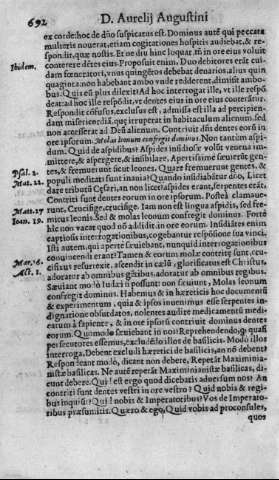 692 D. Aurelij Augustini
ex corde: hoc de dño suspicatus est. Dominus autē qui peccata
mulieris nouerat, etiam cogitationes hospitis audiebat, & re-
spondit, quæ nostis. Et ne diu hinc loquar
Ibidem. conterere dētes eius. Proposuit enim. Duo debitores erāt cui-
dam fœneratori, vnus quingētos debebat denarios, alius quin
quaginta: non habentibus ambobus vnde redderent, dimisit ambo-
bus. Quis eū plus dilexit? Ad hoc interrogat ille, vt ille respō
deat: ad hoc ille respōdit, vt dentes eius in ore eius
Respondit cōfusus, exclusus est: admissa est illa ad percipien-
dam misericordiā, quæ irruperat in habitaculum alienum, sed
non accesserat ad Deū alienum. Contriuit dñs dentes eorū in
ore ipsorum. Molas leonum confregit dominus. Non tantum aspi-
dum. Quid de aspidibus? Aspides insidiosè volūt venena im-
mittere, & aspergere, & insibilare. Apertissimè sæuierūt gen-
Psal. 2. tes, & fremuerunt sicut leones. Quare fremuerunt gentes, &
Mat. 22. populi meditati sunt inania? Quando insidiabantur dño, Licet
dare tributū Cesari, an non licet? aspides erant, serpentes erāt:
Contriti sunt dentes eorum in ore ipsorum. Posteà clamaue-
Mat. 27 runt, Crucifige, crucifige. Iam non est lingua aspidis, sed fre-
Ioan. 19. mitus leonis. Sed & molas leonum confregit dominus. Fortè
hîc non vacat quod nō addidit in ore eorum. Insidiātes enim
captiosis interrogationibus, cogebantur respōsione sua vinci.
Isti autem, qui aperte sæuiebant, nunquid interrogationibus
conuincendi erant? Tamen & eorum molæ contritę sunt: cru-
Mar. 16. cifixus resurrexit, ascendit in cælū, glorificatus est Christus,
Act. 1. adoratur ab omnibus gētibus, adoratur ab omnibus regibus.
Sæuiant modò Iudæi si possunt: non sæuiunt, Molas leonum
confregit dominus. Habemus & in hæreticis hoc documentū
& experimentum, quia & ipsos inuenimus esse serpentes in-
dignatione obsurdatos, nolentes audire medicamentū medi-
eatum à sapiente, & in ore ipsorū contriuit dominus dentes
eorum. Quomodo sæuiebant in nos? Reprehendendo,
persecutores essemus, excludēdo illos de basilicis. Modò illos
interroga, Debent excludi hæretici de basilicis, an nō debent?
Respondeant modò, dicant non debere. Repetāt Maximia-
nistæ basilicas. Ne autē repetāt Maximianistæ basilicas, di-
cunt debere. Quid est ergo quod dicebatis aduersum nos? An
contriti sunt dentes vestri in ore vestro? Quid nobis & regi-
bus inquiūt? Quid nobis & Imperatoribus? Vos de Imperato-
ribus præsumitis. Quæro & ego, Quid vobis ad proconsules,
quos